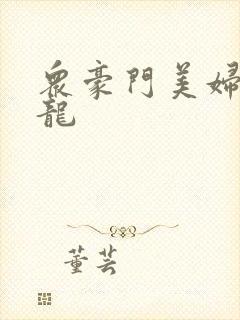 眾豪門美婦
龍
董芸